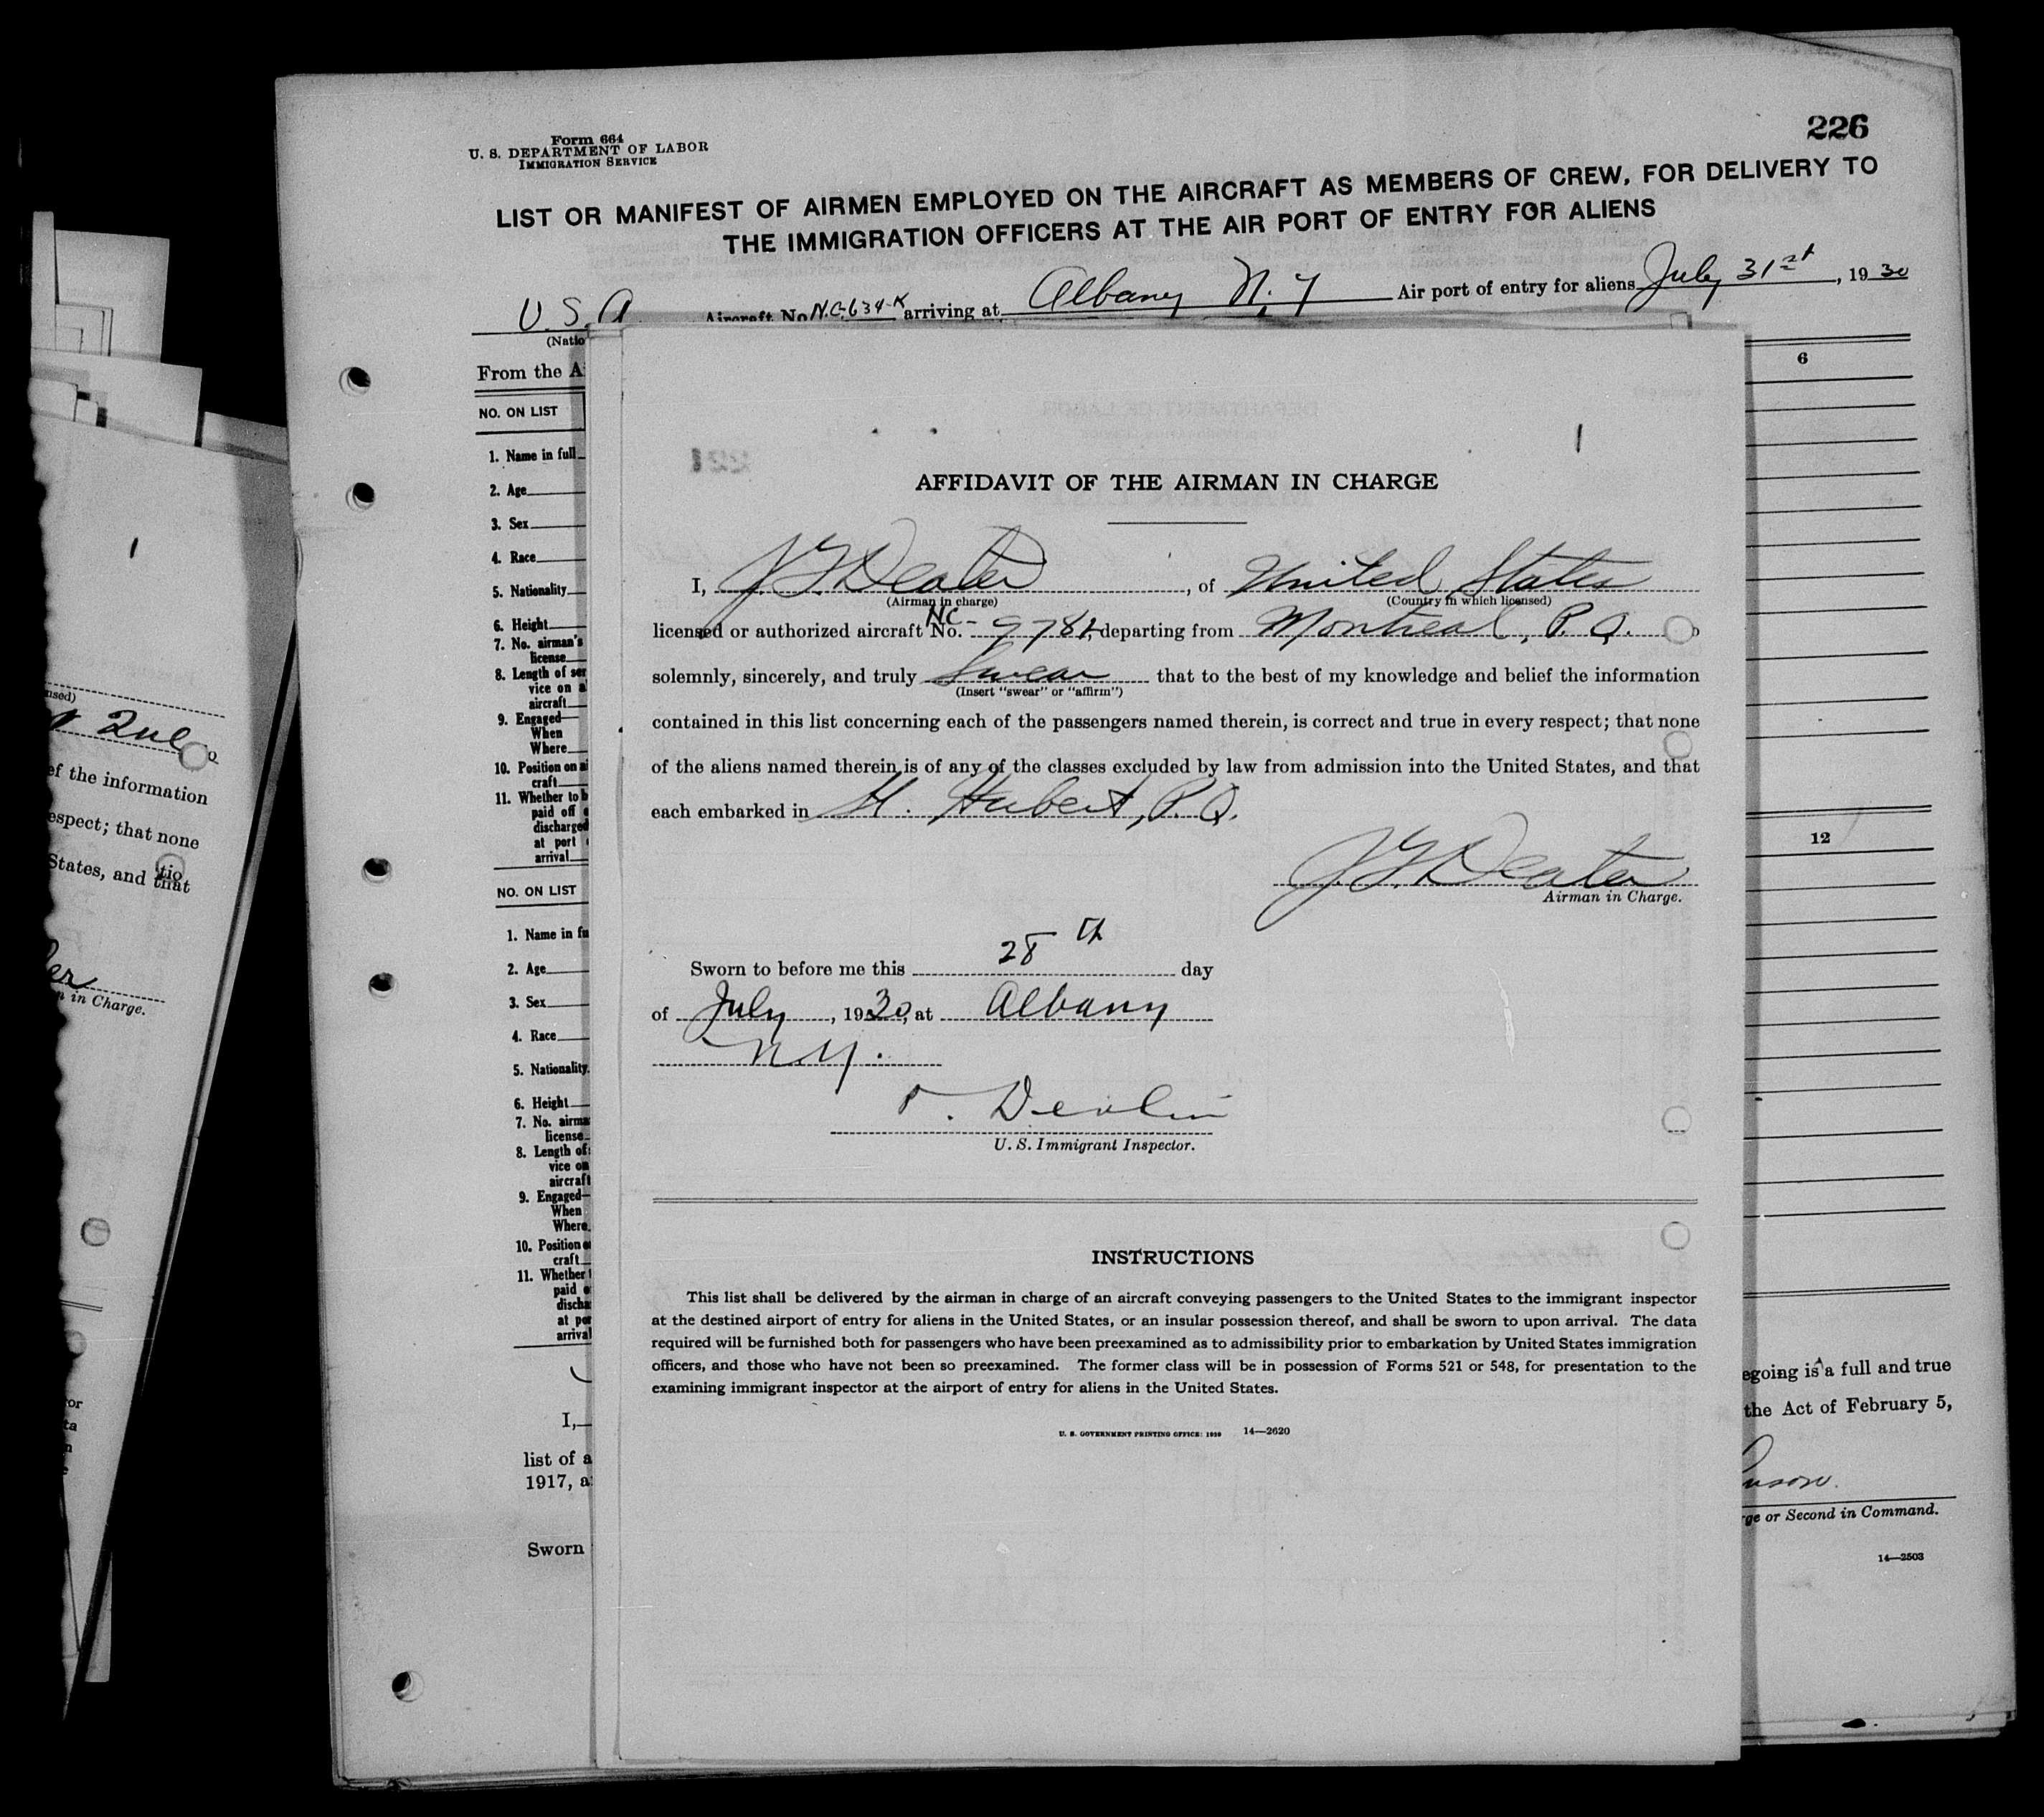 Form 664
U. S. DEPARTMENT OF LABOR
IMMIGRATION SERVICE
226
LIST OR MANIFEST OF AIRMEN EMPLOYED ON THE AIRCRAFT AS MEMBERS OF CREW, FOR DELIVERY TO
THE IMMIGRATION OFFICERS AT THE AIR PORT OF ENTRY FOR ALIENS
U.S.A. Aircraft No. N.C-634-K arriving at Albany N.Y Air port of entry for aliens July 31st, 1930
(Natio
From the A
6
NO. ON LIST
1. Name in full
2. Age
3. Sex
4. Race
5. Nationality
6. Height
7. No. airman's
license
8. Length of ser
vice on a
aircraft
9. Engaged—
When
Where
10. Position on ai
craft
11. Whether to b
paid off
discharged
at port
arrival
12
NO. ON LIST
1. Name in fu
2. Age
3. Sex
4. Race
5. Nationality
6. Height
7. No. airma
license
8. Length of
vice on
aircraft
9. Engaged—
When
Where
10. Position
craft
11. Whether
paid
discha
at por
arrival
I,
list of a
1917, a
Sworn
egoing is a full and true
the Act of February 5,
rge or Second in Command.
14—2503
1
AFFIDAVIT OF THE AIRMAN IN CHARGE
I, J. G. Deater, of United States
(Airman in charge) (Country in which licensed)
licensed or authorized aircraft No. NC-9782, departing from Montreal, P.Q.
solemnly, sincerely, and truly Swear that to the best of my knowledge and belief the information
(Insert "swear" or "affirm")
contained in this list concerning each of the passengers named therein, is correct and true in every respect; that none
of the aliens named therein is of any of the classes excluded by law from admission into the United States, and that
each embarked in St. Hubert, P.Q.
J. G. Deater
Airman in Charge.
Sworn to before me this 28th day
of July, 1930, at Albany
N.Y.
Devlin
U. S. Immigrant Inspector.
INSTRUCTIONS
This list shall be delivered by the airman in charge of an aircraft conveying passengers to the United States to the immigrant inspector
at the destined airport of entry for aliens in the United States, or an insular possession thereof, and shall be sworn to upon arrival. The data
required will be furnished both for passengers who have been preexamined as to admissibility prior to embarkation by United States immigration
officers, and those who have not been so preexamined. The former class will be in possession of Forms 521 or 548, for presentation to the
examining immigrant inspector at the airport of entry for aliens in the United States.
U. S. GOVERNMENT PRINTING OFFICE: 1929 14—2620
1
nsed)
ef the information
espect; that none
States, and that
n in Charge.